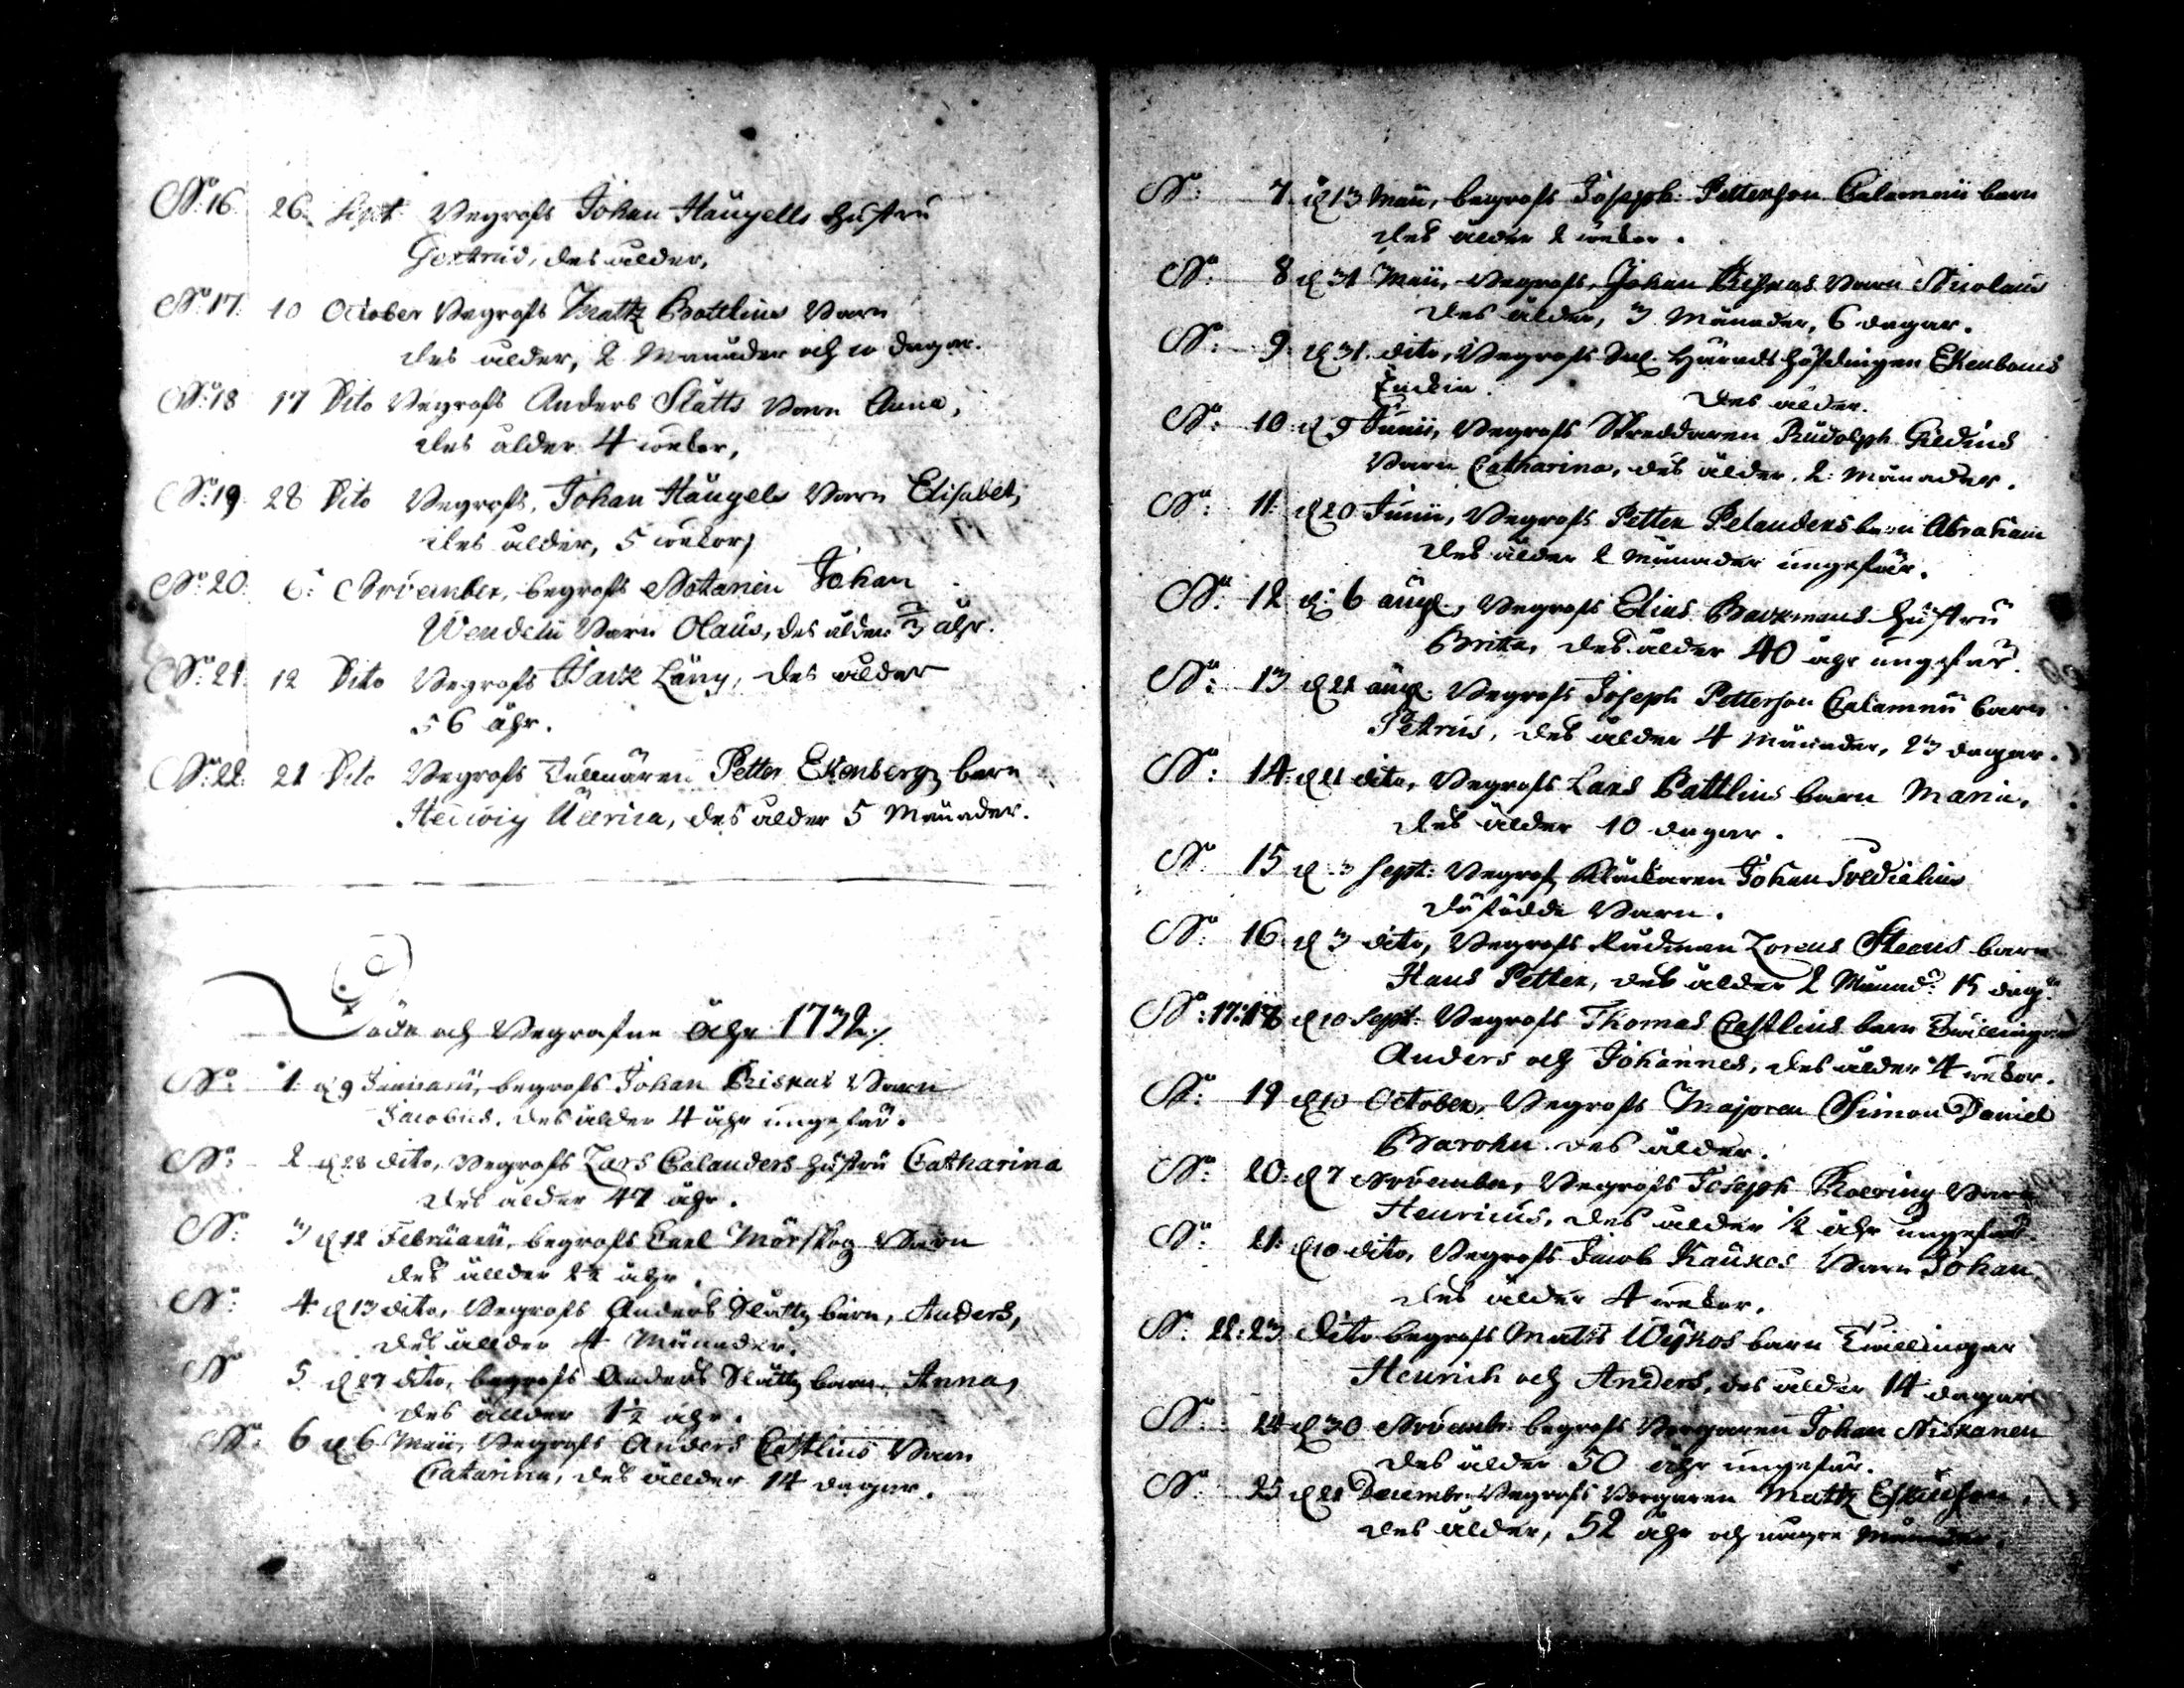 No 16. 26. Sept. Begrofs Johan Haugells hustru
Gertrud, des ålder,
No 17. 10 October Begrofs Matts Bottlius Barn
des ålder, 2 Månader och 10 dagar.
No 18 17 Dito Begrofs Anders Slätts Barn Anna,
des ålder 4 wekor,
No 19 28 Dito Begrofs, Johan Haugels Barn Elisabet,
des ålder, 5 wekor,
No 20. 6: November, begrofs Notarien Johan
Wendelii Barn Olaus, des ålder 3 åhr.
No 21. 12 Dito Begrofs Läng, des ålder
56 åhr.
No 22. 21 Dito Begrofs Tullnären Petter Ekenberg barn
Hedwig Ulrica, des ålder 5 Månader.
Döde och Begrafne åhr 1732.
No 1. d 9 Januarii, begrofs Johan Riskas Barn
Jacobus, des ålder 4 åhr ungefär.
No: 2 d 28 dito, Begrofs Lars Calanders hustru Catharina
des ålder 47 åhr.
No: 3 d 12 Februarii, begrofs Carl Mörskog Barn
des ållder 2½ åhr.
No: 4 d 13 dito, Begrofs Anders Slätts barn, Anders,
des ållder 4 Månader.
No 5. d 27 dito, begrofs Anders Slätts barn, Anna,
des ållder 1½ åhr.
No: 6 d 6 Maii, Begrofs Anders Castlius Barn
Catarina, des ållder 14 dagar.
No: 7. d 13 Maii, begrofs Joseph Petterson Calamnii barn
des ålder 2 wekor.
No: 8 d 31 Maii, Begrofs, Johan Riskas Barn Nicolaus
des ålder, 3 Månader, 6 dagar.
No: 9. d 31. dito, Begrofs Häradshöfdingen Ekenboms
des ålder.
No: 10. d 9 Junii, Begrofs Skreddaren Rudolph Gildius
Barn Catharina, des ålder, 2: Månader.
No: 11. d 20 Junii, Begrofs Petter Pelanders barn Abraham
des ålder 2 Månader ungefär.
No: 12 d: 6 aug., Begrofs Elias Backmans hustru
Brita, des ålder 40 åhr ungefär.
No: 13 d 21 aug. Begrofs Joseph Petterson Calamnii barn
Petrus, des ålder 4 Månader, 23 dagar.
No: 14. d 21 dito, Begrofs Lars Battlius barn Maria,
des ålder 10 dagar.
No: 15 d 3 Sept: Begrofs Klockaren Johan
dödfödde Barn.
No: 16. d 3 dito, Begrofs Rådman Lorens Steens barn
Hans Petter, des ålder 2 Månad: 15 dag:
No: 17:18 d 10 Sept. Begrofs Thomas Castlius barn Twillingar
Anders och Johannes, des ålder 4 wekor.
No: 19 d 10 October, Begrofs Majoren Simon Daniel
Barohn des ålder.
No: 20: d 7 November, Begrofs Joseph Roering Barn
Henricus, des ålder ½ åhr ungefär.
No: 21: d 10 dito, Begrofs Jacob Kaukos Barn Johan,
des ålder 4 wekor.
No: 22:23. Dito begrofs Matts Wijkos barn Twillingar
Henrich och Anders, des ålder 14 dagar
No: 24 d 30 Novembr. begrofs Borgaren Johan Niskanen
des ålder 50 åhr ungefär.
No: 25 d 21 Decembr. Begrofs Borgaren Matts
des ålder, 52 åhr och några Månader.